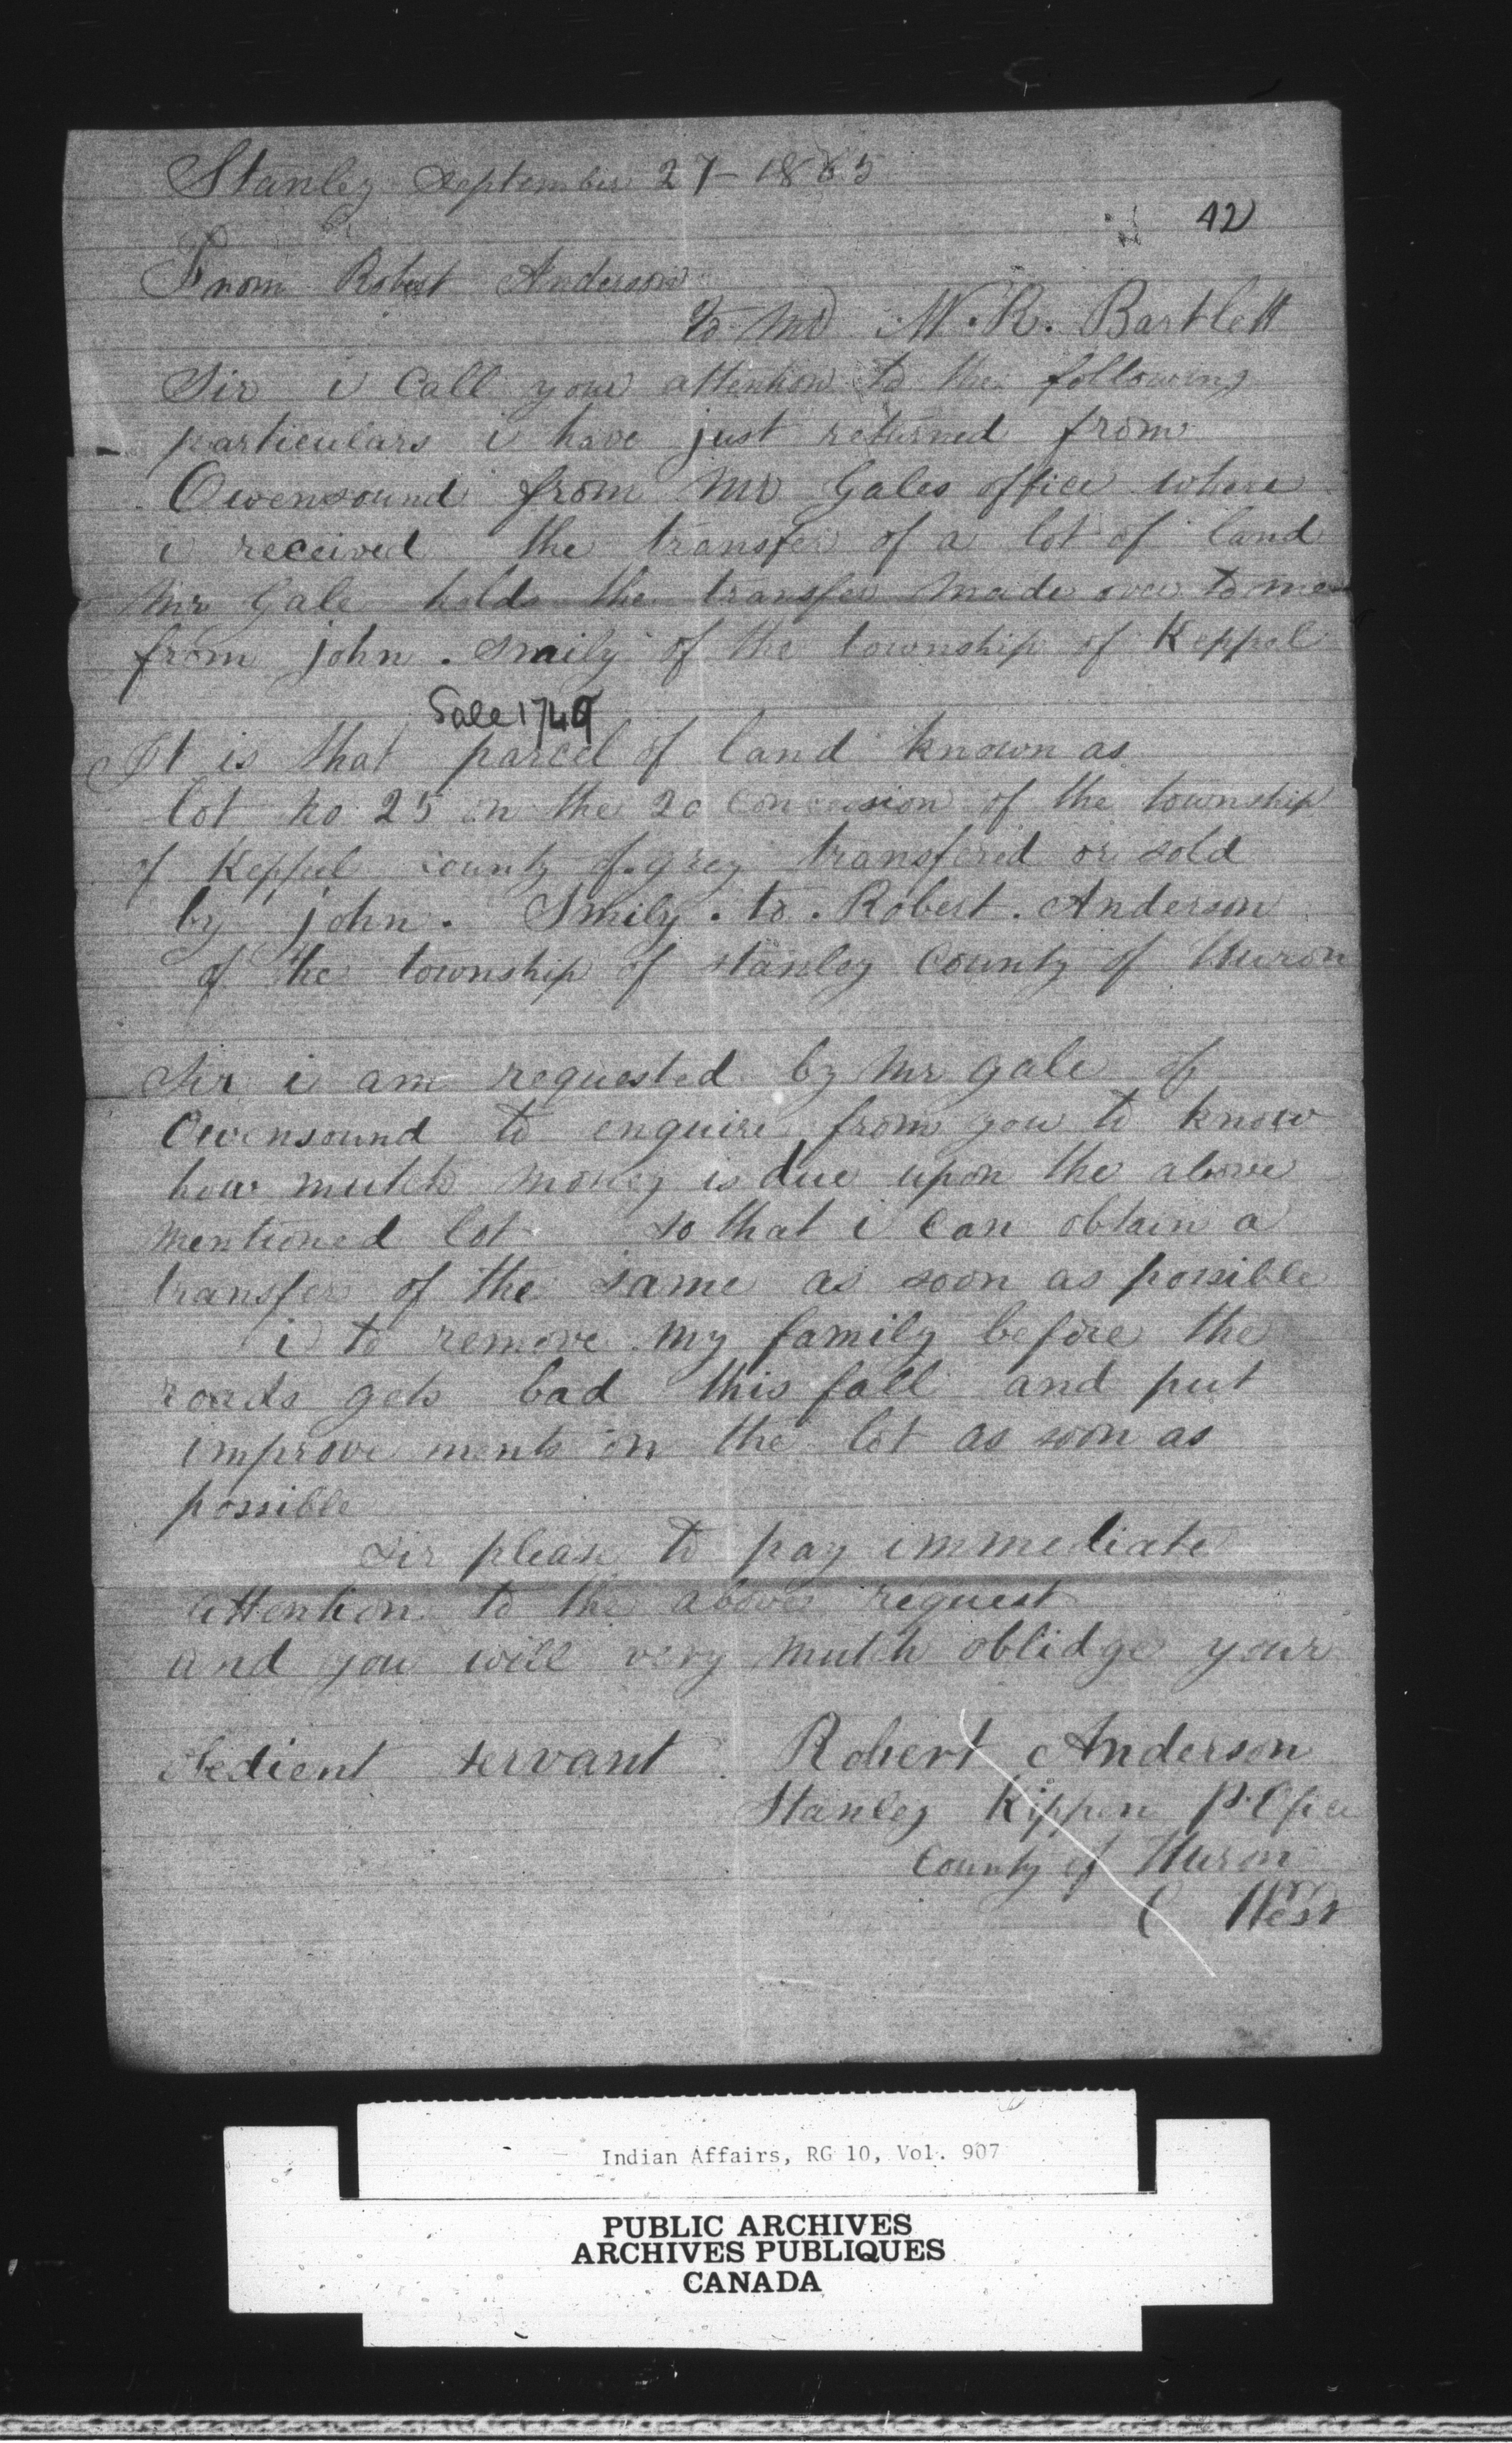 Stanley September 27 - 1865
42
From Robert Anderson
to Mr W. R. Bartlett
Sir i Call your attention to the following
particulars i have just returned from
Owensound from Mr Gales office where
i received the transfer of a lot of land
Mr Gale holds the transfer made over to me
from john . Smily of the township of Keppel
Sale 1749
It is that parcel of land known as
lot no 25 in the 20 Concession of the township
of Keppel county of grey transfered or sold
by john . Smily . to . Robert . Anderson
of the township of stanley County of Huron
Sir i am requested by Mr gale of
Owensound to enquire from you to know
how mutch money is due upon the above
mentioned lot so that i Can obtain a
transfer of the same as soon as possible
i to remove my family before the
roads gets bad this fall and put
improve ments on the lot as soon as
possible
Sir please to pay immediate
attention to the above request
and you will very mutch oblidge your
obedient servant Robert Anderson
Stanley Kippen P. Office
County of Huron
C West
Indian Affairs, RG 10, Vol. 907
PUBLIC ARCHIVES
ARCHIVES PUBLIQUES
CANADA